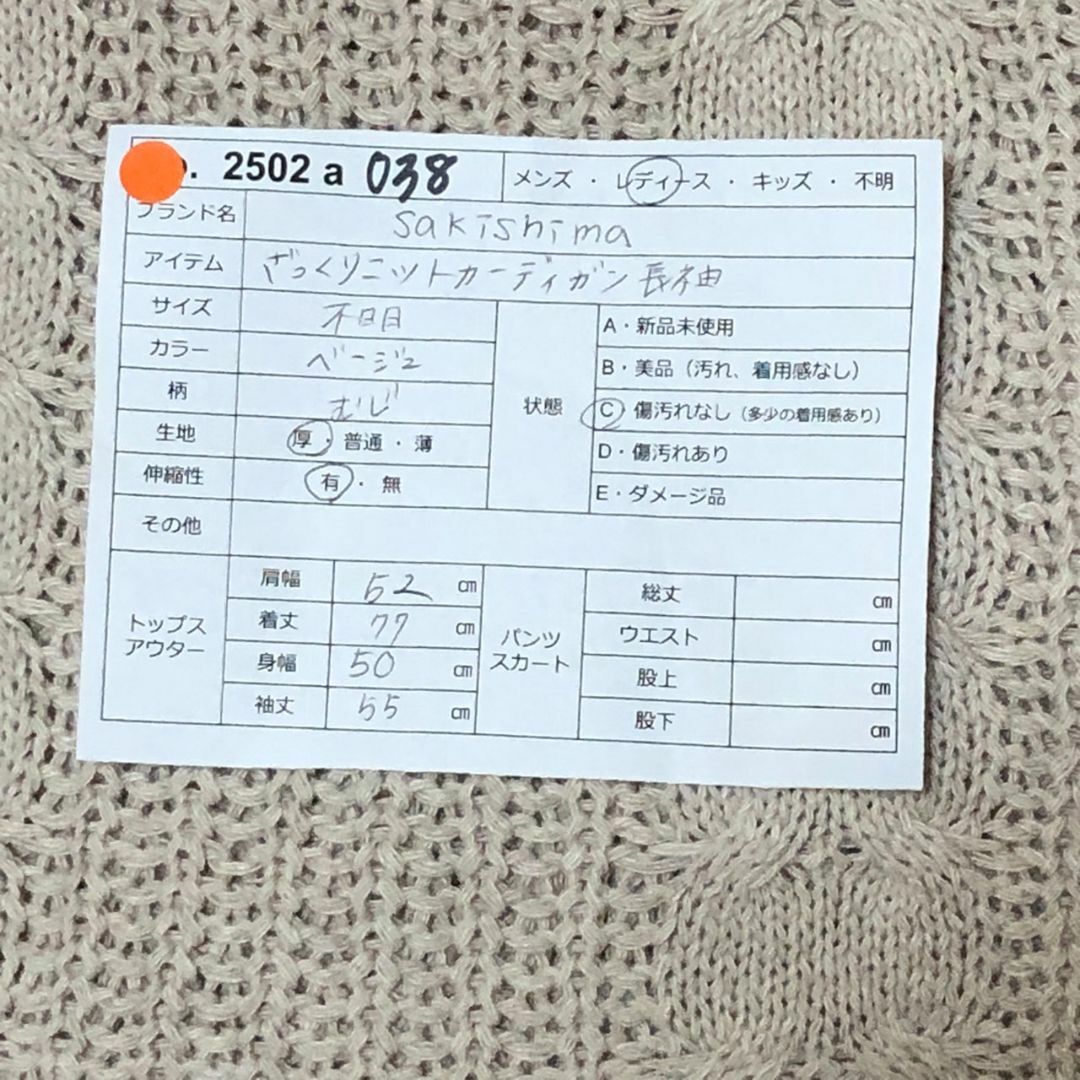 . 2502 a 038 メンズ ・ レディース ・ キッズ ・ 不明
ブランド名 sakishima
アイテム ざっくりニットカーディガン長袖
サイズ 不明
カラー ベージュ
柄 むじ
生地 厚・普通・薄
伸縮性 有・無
状態
A・新品未使用
B・美品（汚れ、着用感なし）
C 傷汚れなし（多少の着用感あり）
D・傷汚れあり
E・ダメージ品
その他
トップス
アウター
肩幅 52 cm
着丈 77 cm
身幅 50 cm
袖丈 55 cm
パンツ
スカート
総丈 cm
ウエスト cm
股上 cm
股下 cm